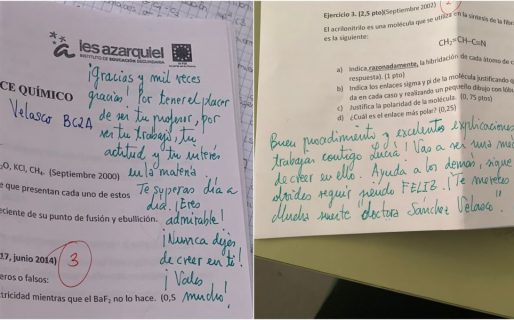 ies azarquiel
INSTITUTO DE EDUCACIÓN SECUNDARIA
¡Gracias y mil veces
gracias! Por tener el placer
CE QUÍMICO
Velasco BC2A
de ser tu profesor, por
ser tu trabajo, tu
actitud y tu interés
en la materia.
₂O, KCl, CH₄. (Septiembre 2000)
e que presentan cada uno de estos
Te superas día a
día. ¡Eres
eciente de su punto de fusión y ebullición.
admirable!
¡Nunca dejes
17, junio 2014)
3
de creer en ti!
eros o falsos:
¡Vales
tricidad mientras que el BaF₂ no lo hace. (0,5
mucho!
Ejercicio 3. (2,5 pto)(Septiembre 2002)
El acrilonitrilo es una molécula que se utiliza en la síntesis de la fibr
es la siguiente:
CH₂=CH–C≡N
a) Indica razonadamente, la hibridación de cada átomo de c
respuesta). (1 pto)
b) Indica los enlaces sigma y pi de la molécula justificando q
da en cada caso y realizando un pequeño dibujo con lób
c) Justifica la polaridad de la molécula. (0,75 ptos)
d) ¿Cuál es el enlace más polar? (0,25)
Buen procedimiento y excelentes explicaciones
trabajar contigo Lucía! Vas a ser una
de creer en ello. Ayuda a los demás, sigue
olvides seguir siendo FELIZ. ¡Te mereces
Mucha suerte "doctora Sánchez Velasco".